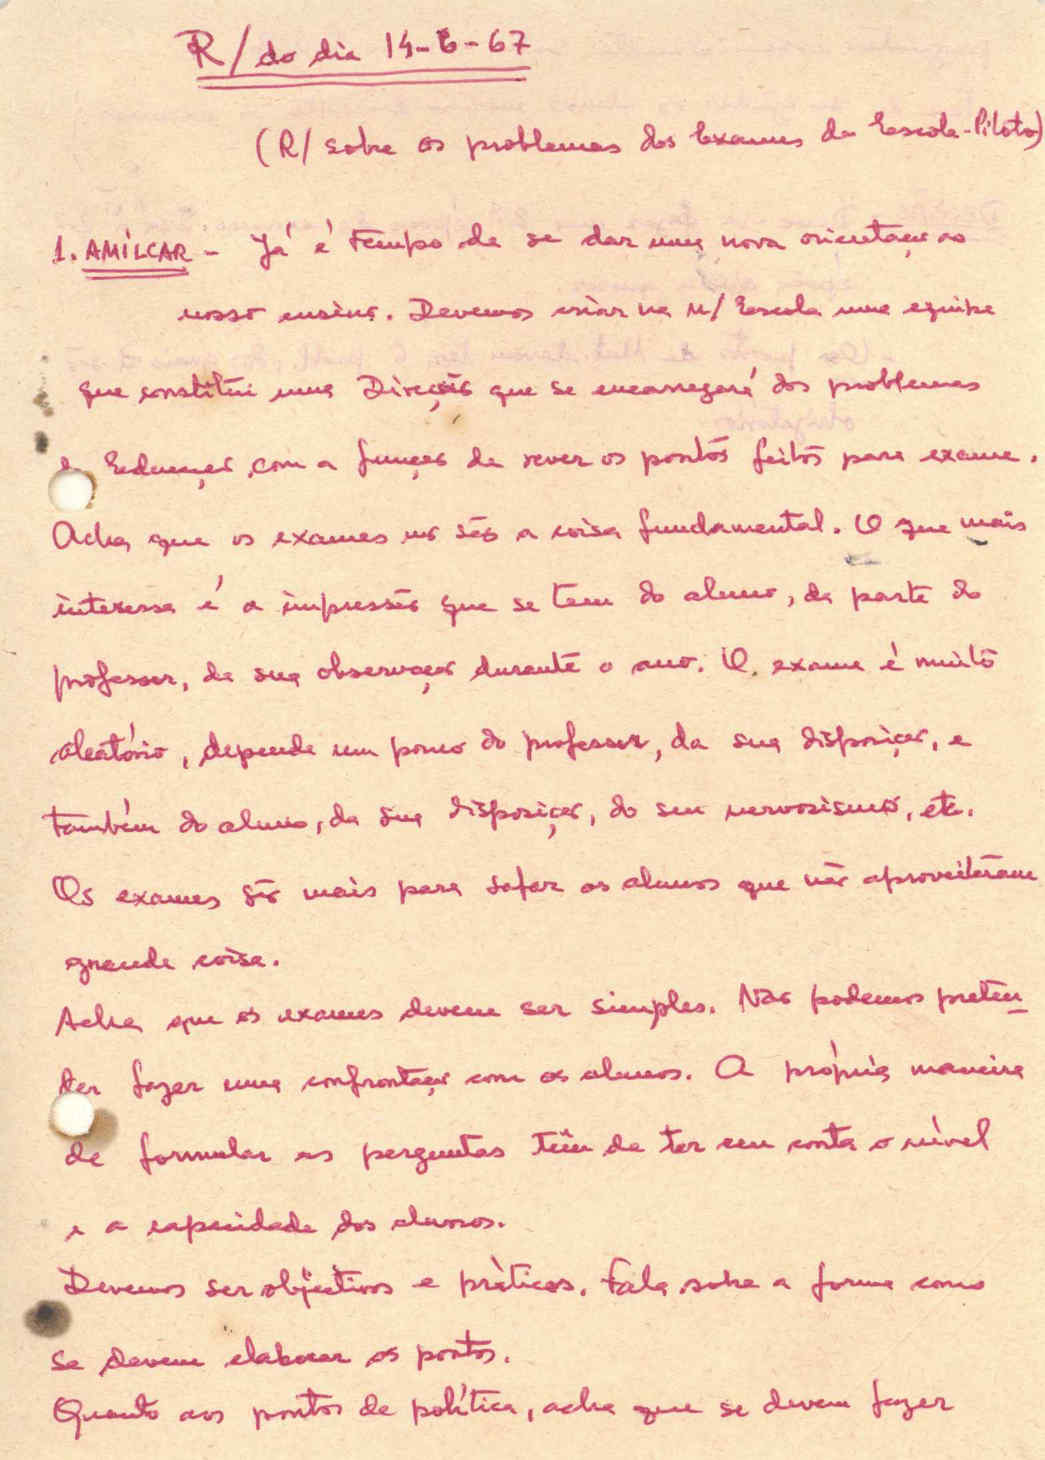 R/ do dia 14-6-67
(R/ sobre os problemas dos Exames da Escola-Piloto)
1. AMÍLCAR - Já é tempo de se dar uma nova orientação ao
nosso ensino. Devemos criar na n/ Escola uma equipe
que constitui uma Direcção que se encarregará dos problemas
Educação, com a função de rever os pontos feitos para exame.
Acha que os exames não são a coisa fundamental. O que mais
interessa é a impressão que se tem do aluno, da parte do
professor, da sua observação durante o ano. O exame é muito
aleatório, depende um pouco do professor, da sua disposição, e
também do aluno, da sua disposição, do seu nervosismo, etc.
Os exames são mais para safar os alunos que não aproveitaram
grande coisa.
Acha que os exames devem ser simples. Não podemos preten-
der fazer uma confrontação com os alunos. A própria maneira
de formular as perguntas têm de ter em conta o nível
e a capacidade dos alunos.
Devemos ser objectivos e práticos. Fala sobre a forma como
se devem elaborar os pontos.
Quanto aos pontos de política, acha que se devem fazer